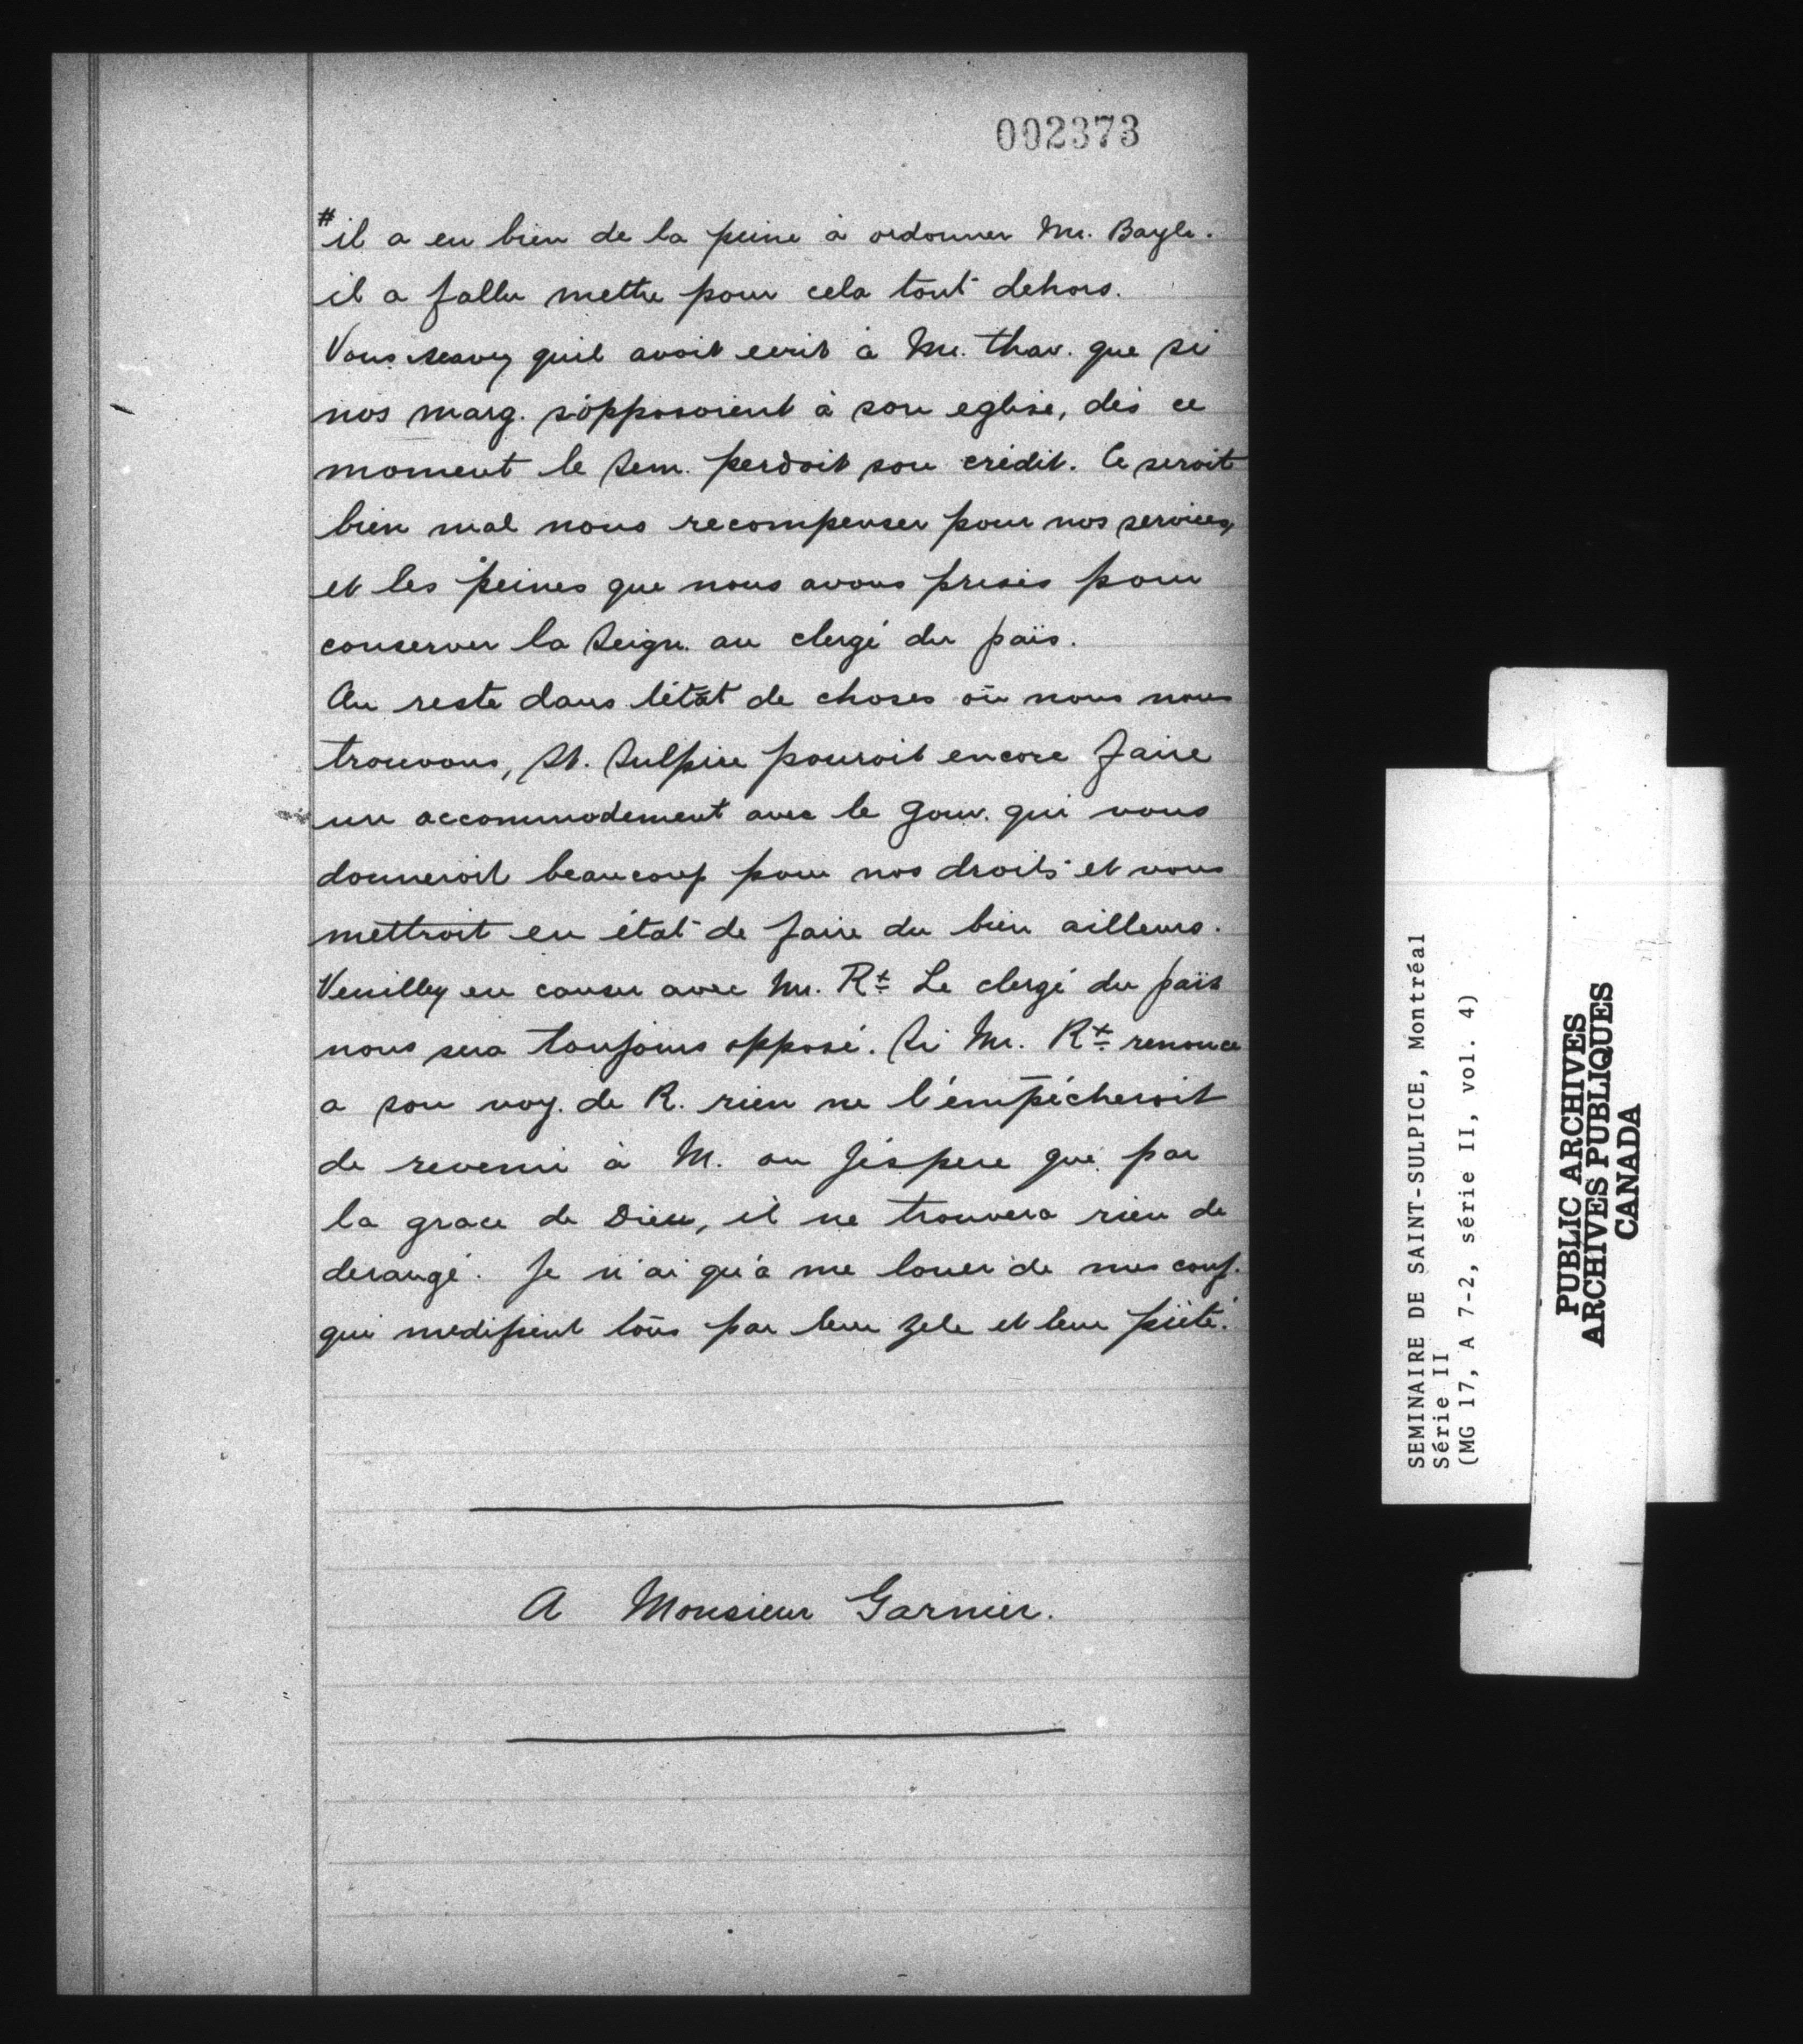 002373
# il a eu bien de la peine à ordonner Mr. Bayle.
il a fallu mettre pour cela tout dehors.
Vous scavez quil avoit ecrit à Mr. Thav. que si
nos marg. s'opposoient à son eglise, dès ce
moment le Sem. perdoit son crédit. Ce seroit
bien mal nous recompenser pour nos services,
et les peines que nous avons prises pour
conserver la Seign. au clergé du païs.
Au reste dans l'état de choses où nous nous
trouvons, St. Sulpice pouroit encore faire
un accommodement avec le Gouv. qui vous
donneroit beaucoup pour nos droits et vous
mettroit en état de faire du bien ailleurs.
Veuillez en causer avec Mr. Rt. Le clergé du païs
nous sera toujours opposé. Si Mr. Rt. renonce
a son voy. de R. rien ne l'empécheroit
de revenir à M. ou j'éspere que par
la grace de Dieu, il ne trouvera rien de
derangé. Je n'ai qu'à me louer de mes conf.
qui medifient tous par leur zele et leur piété.
A Monsieur Garnier.
SEMINAIRE DE SAINT-SULPICE, Montréal
Série II
(MG 17, A 7-2, série II, vol. 4)
PUBLIC ARCHIVES
ARCHIVES PUBLIQUES
CANADA